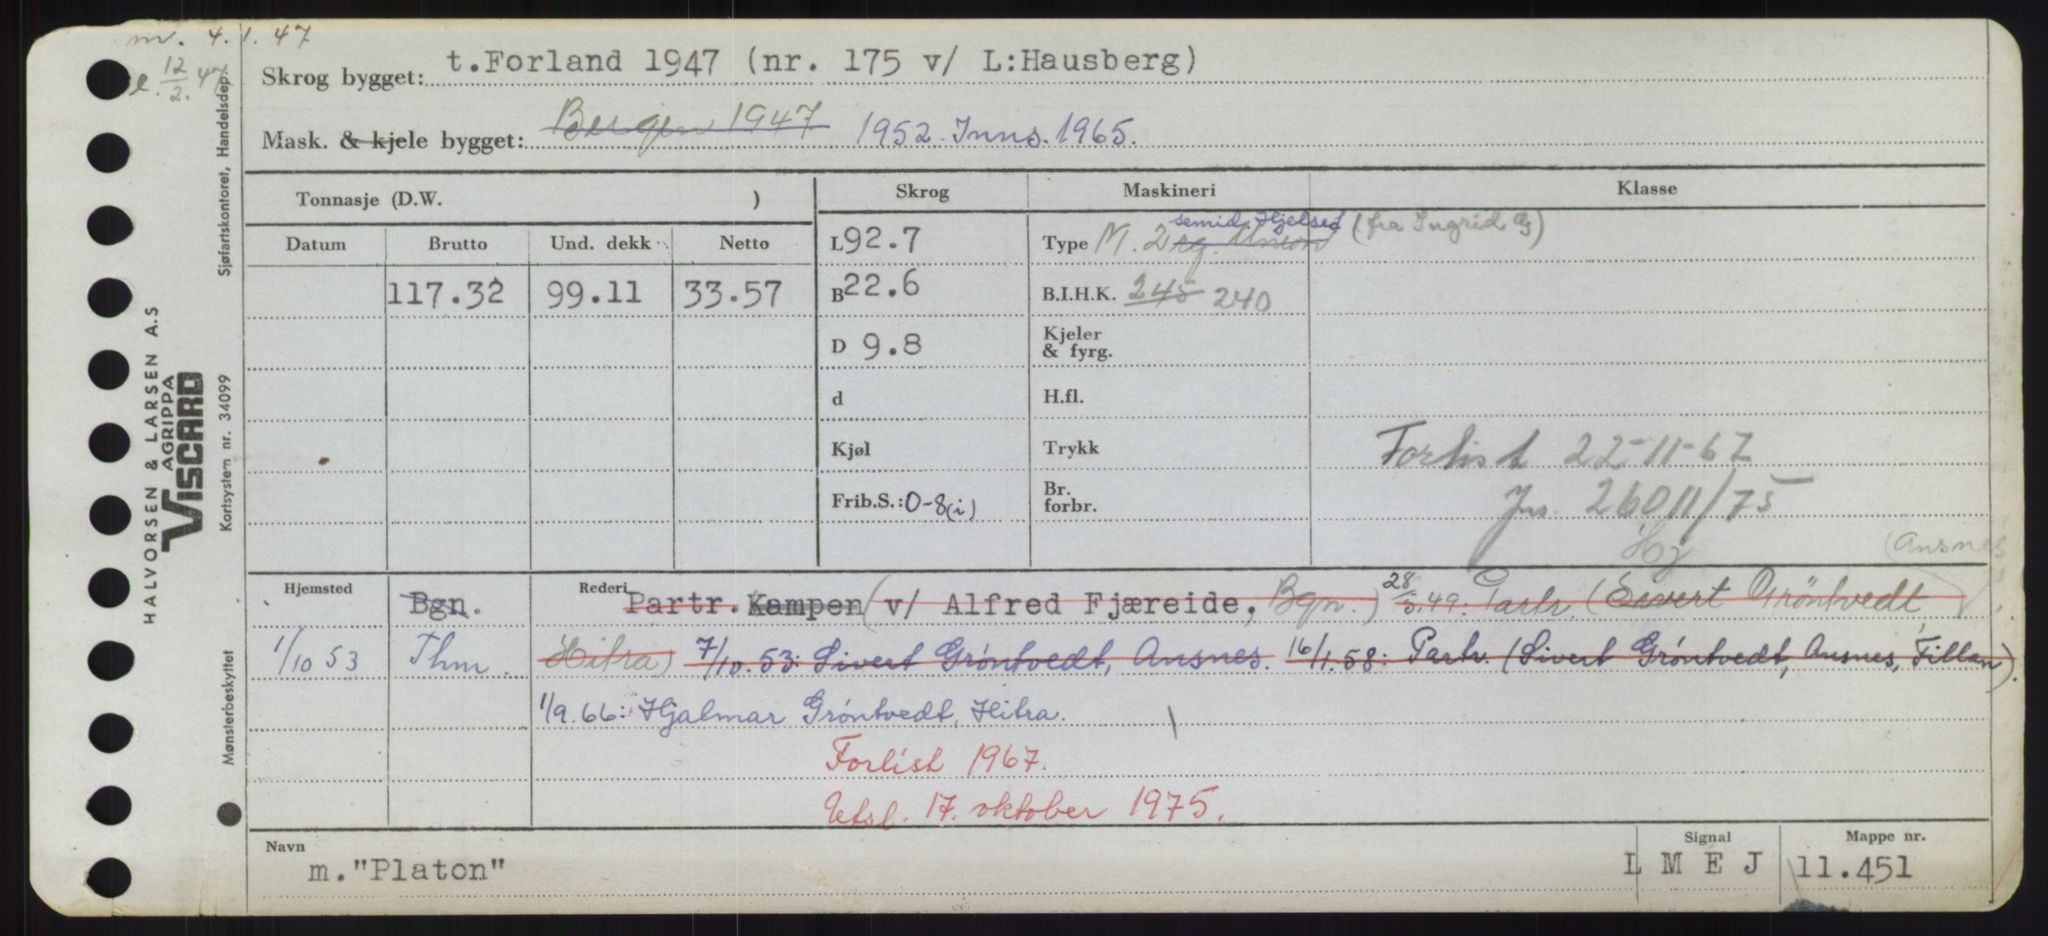 m. 4.1.47
e. 12/2. 47
Skrog bygget: t.Forland 1947 (nr. 175 v/ L:Hausberg)
Mask. & kjele bygget: Bergen 1947 1952. Inns. 1965.
Tonnasje (D.W. )
Skrog
Maskineri
Klasse
Datum
Brutto
Und. dekk
Netto
117.32
99.11
33.57
L 92.7
B 22.6
D 9.8
d
Kjøl
Frib.S.: 0-8(i)
semid. Hjelset
Type M. 2 rg. Union (fra Ingrid )
B.I.H.K. 245 240
Kjeler
& fyrg.
H.fl.
Trykk
Br.
forbr.
Forlist 22-11-67
Jn. 26011/75
Hj
(Ansnes
Hjemsted
Rederi
Bgn. Partr. Kampen (v/ Alfred Fjæreide, Bgn.) 28/5.49: Partr. (Sivert Grøntvedt
1/10 53 Thm. Hitra) 7/10.53: Sivert Grøntvedt, Ansnes. 16/1.58: Partr. (Sivert Grøntvedt, Ansnes, Fillan).
1/9.66: Hjalmar Grøntvedt, Hitra.
Forlist 1967.
Utsl. 17. oktober 1975.
Navn
m."Platon"
Signal
L M E J
Mappe nr.
11.451
HALVORSEN & LARSEN A.S
AGRIPPA
VISCARD
Sjøfartskontoret, Handelsdep.
Kortsystem nr. 34099
Mønsterbeskyttet